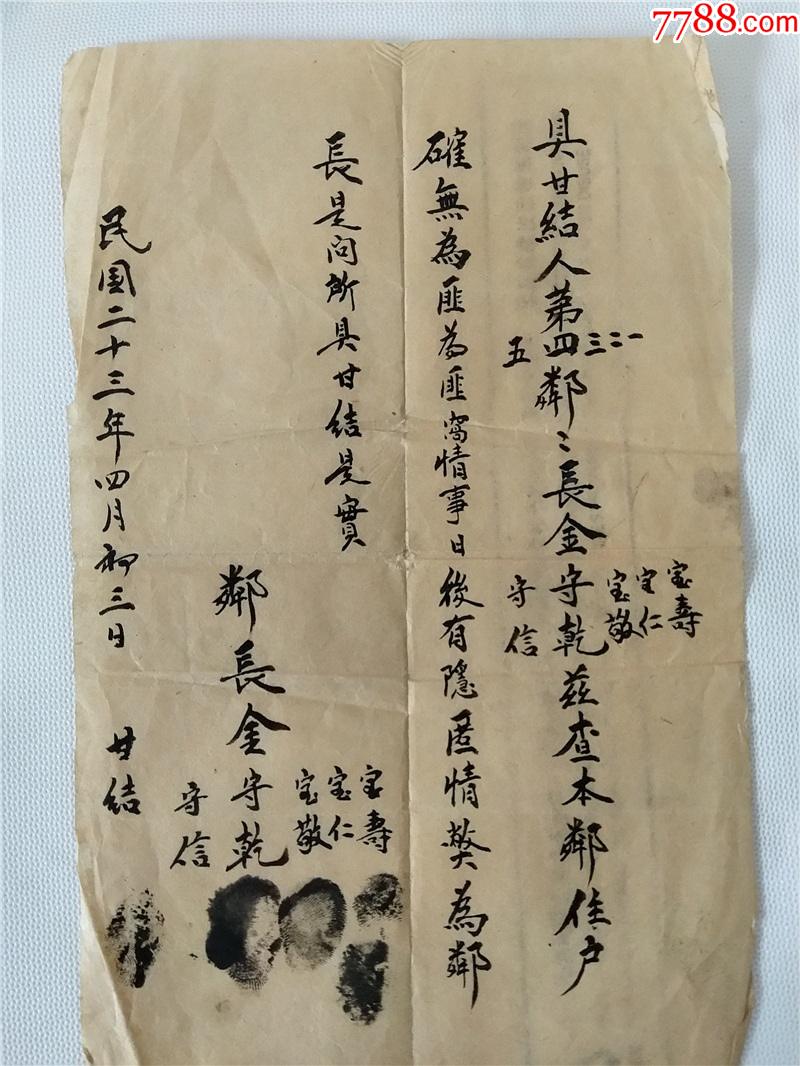 7788.com
具甘結人第一二三四五鄰〻長金宝壽宝仁宝敬守乾守信茲查本鄰住户
確無為匪為匪窩情事日後有隱匿情獘為鄰
長是问所具甘結是實
鄰長金宝壽宝仁宝敬守乾守信
民國二十三年四月初三日 甘結